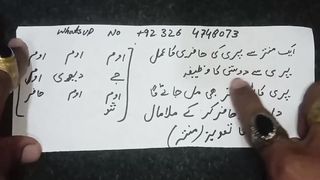 Whatsup No +92 326 4748073
ایک منتر سے پری کی حاضری کا عمل
پری سے دوستی کا وظیفہ
پری کا
مل جائے گا
حاضر کر کے ملامال
کا تعویز (منتر)
اوم اوم اوم
جے دیوی اوم
اوم اوم حاضر